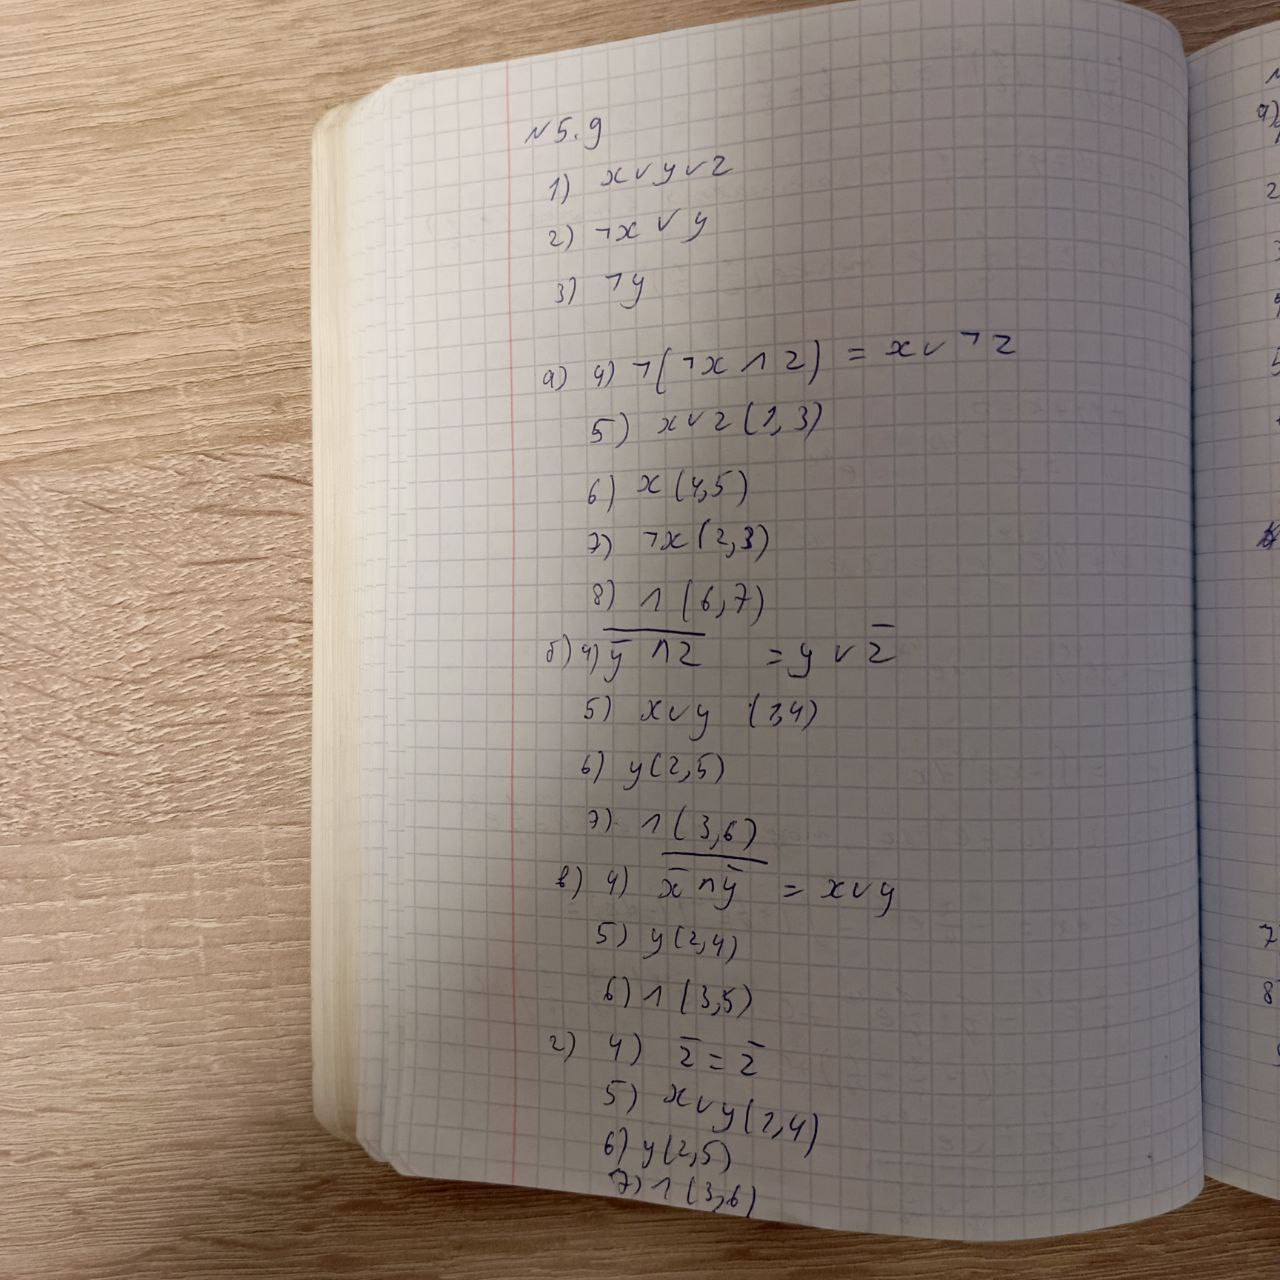 №5.9
1) x∨y∨z
2) ¬x∨y
3) ¬y
а) 4) ¬(¬x∧z) = x∨¬z
5) x∨z (1,3)
6) x (4,5)
7) ¬x (2,3)
8) ∧ (6,7)
б) 4) \overline{\overline{y}∧z} = y∨\overline{z}
5) x∨y (1,4)
6) y (2,5)
7) ∧ (3,6)
в) 4) \overline{\overline{x}∧\overline{y}} = x∨y
5) y (2,4)
6) ∧ (3,5)
г) 4) \overline{z} = \overline{z}
5) x∨y (1,4)
6) y (2,5)
7) ∧ (3,6)
а)
2
7
8